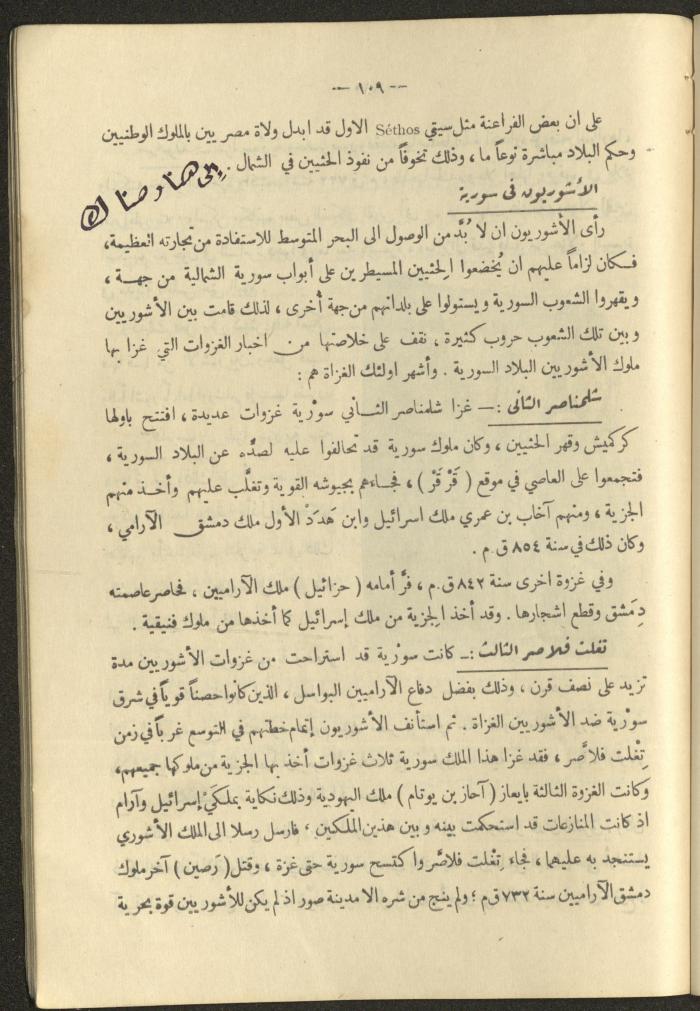 -- ١٠٩ --
على ان بعض الفراعنة مثل سيتي Séthos الاول قد ابدل ولاة مصريين بالملوك الوطنيين
وحكم البلاد مباشرة نوعاً ما ، وذلك تخوفاً من نفوذ الحثيين في الشمال .
إلى هنا وصناك
الأشوريون في سورية
رأى الأشوريون ان لا بُدَّ من الوصول الى البحر المتوسط للاستفادة من تجارته العظيمة،
فـكان لزاماً عليهم ان يُخضعوا الحثيين المسيطرين على أبواب سورية الشمالية من جهـــة ،
ويقهروا الشعوب السورية ويستولوا على بلدانهم من جهة أُخرى ، لذلك قامت بين الأشوريين
وبين تلك الشعوب حروب كثيرة ، نقف على خلاصتها من اخبار الغزوات التي غزا بها
ملوك الأشوريين البلاد السورية . وأشهر اولئك الغزاة هم :
شلمناصر الثاني :— غزا شلمناصر الثـــاني سورْية غزوات عديدة ، افتتح باولها
كركميش وقهر الحثيين ، وكان ملوك سورية قد تحالفوا عليه لصدّه عن البلاد السورية ،
فتجمعوا على العاصي في موقع ( قَرْ قَرْ ) ، فجـاءهم بجيوشه القوية وتغلَّب عليهم وأخـذ منهم
الجزية ، ومنهم آخاب بن عمري ملك اسرائيل وابن هَدَدْ الأول ملك دمشق الآرامي ،
وكان ذلك في سنة ٨٥٤ ق . م .
وفي غزوة اخرى سنة ٨٤٢ ق.م ، فرَّ أمامه ( حزائيل ) ملك الآراميين ، فحاصر عاصمته
دِمَشق وقطع اشجارها . وقد أخذ الجزية من ملك إسرائيل كما أخذها من ملوك فنيقية .
تغلت فلاصر الثالث :ــ كانت سورْية قد استراحت من غزوات الأشوريين مدة
تزيد على نصف قرن ، وذلك بفضل دفاع الآراميين البواسل ، الذين كانوا حصناً قوياً في شرق
سورْية ضد الأشوريين الغزاة . ثم استأنف الأشوريون إتمام خطتهم في التوسع غرباً في زمن
تِغْلت فلاَّصر ، فقد غزا هذا الملك سورية ثلاث غزوات أخذ بها الجزية من ملوكها جميعهم،
وكانت الغزوة الثالثة بايعاز ( آحاز بن يوتام ) ملك اليهودية وذلك نكاية بملكَيْ إسرائيل وآرام
اذ كانت المنازعات قد استحكمت بينه وبين هذين الملكين ، فارسل رسلا الى الملك الأشوري
يستنجد به عليهما ، فجاء تِغْلت فلاصَّر واكتسح سورية حتى غزة ، وقتل ( رَصين ) آخر ملوك
دمشق الآراميين سنة ٧٣٢ ق م ؛ ولم ينج من شره الا مدينة صور اذ لم يكن للأشوريين قوة بحرية